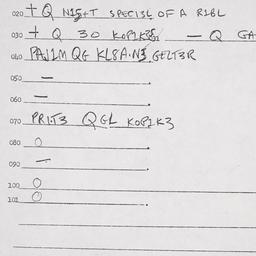 020 + Q N15+T SPECI3L OF A R1BL
030 + Q 30 KOP1K3 — Q GA
040 PAJ1M QG KL8A.N3 GELT3R
050 —
060 —
070 PR1T3 QGL KOP1K3
080 O
090 —
100 O
101 O